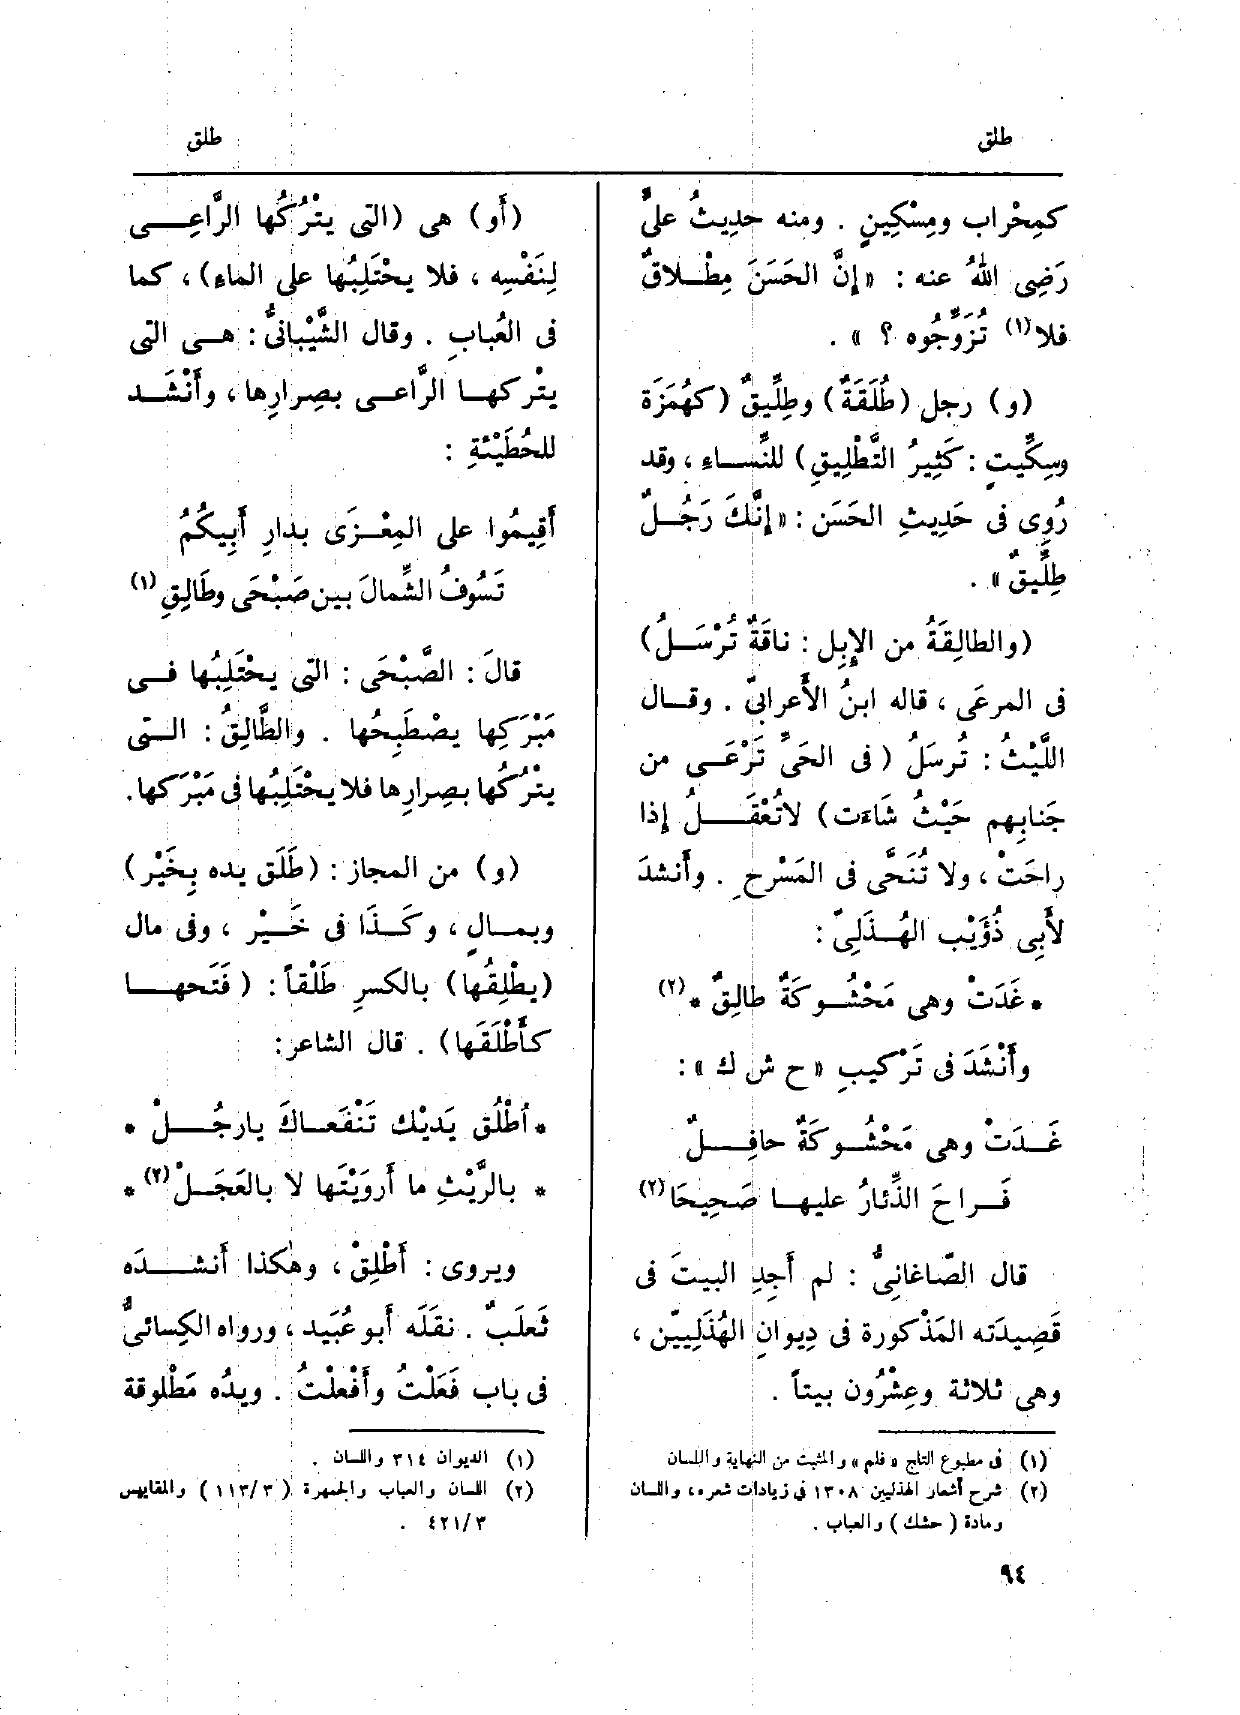 طلق
طلق
كمِحْراب ومِسْكِينٍ . ومنه حديثُ علىٍّ
رَضِى اللهُ عنه : «إنَّ الحَسَنَ مِطْلاقٌ
فلا(١) تُزَوِّجُوه ؟ » .
(و) رجل (طُلَقَةٌ) وطِلِّيقٌ (كهُمَزَة
وسِكِّيتٍ : كَثِيرُ التَّطْلِيقِ) للنِّساءِ ، وقد
رُوِى فى حَدِيثِ الحَسَن : «إنَّكَ رَجُلٌ
طِلِّيقٌ » .
(والطالِقَةُ من الإِبِل : ناقَةٌ تُرْسَلُ)
فى المرعَى ، قاله ابنُ الأَعرابىّ . وقال
اللَّيْثُ : تُرسَلُ ( فى الحَىِّ تَرْعَى من
جَنابِهم حَيْثُ شَاءَت) لاتُعْقَلُ إذا
راحَتْ ، ولا تُنَحَّى فى المَسْرحِ . وأَنشدَ
لأَبِى ذُؤَيْب الهُذَلِىّ :
* غَدَتْ وهى مَحْشُوكَةٌ طالِقٌ *(٢)
وأَنْشَدَ فى تَرْكيبِ «ح ش ك » :
غَدَتْ وهى مَحْشُوكَةٌ حافِلٌ
فَراحَ الذِّئارُ عليها صَحِيحَا(٢)
قال الصّاغانِىُّ : لم أَجِدِ البيتَ فى
قَصِيدَته المَذْكورة فى دِيوانِ الهُذَلِيّين ،
وهى ثلاثة وعِشْرُون بيتاً .
(١) فى مطبوع التاج « فلم » والمثبت من النهاية واللسان
(٢) شرح أشعار الهذليين ١٣٠٨ فى زيادات شعره، واللسان
ومادة ( حشك ) والعباب .
(أَو) هى (التى يتْرُكُها الرَّاعِى
لِنَفْسِه ، فلا يحْتَلِبُها على الماءِ) ، كما
فى العُبابِ . وقال الشَّيْبانىُّ : هى التى
يتْركها الرَّاعى بصِرارِها ، وأَنْشَد
للحُطَيْئةِ :
أَقِيمُوا على المِعْزَى بدارِ أَبِيكُمُ
تَسُوفُ الشِّمالَ بين صَبْحَى وطَالِقِ(١)
قالَ : الصَّبْحَى : التى يحْتَلِبُها فى
مَبْرَكِها يصْطَبِحُها . والطَّالِقُ : التى
يتْرُكُها بصِرارِها فلا يحْتَلِبُها فى مَبْرَكها.
(و) من المجاز : (طَلَق يده بِخَيْر)
وبمالٍ ، وكَذَا فى خَيْر ، وفى مال
(يطْلِقُها) بالكسرِ طَلْقاً : ( فَتَحها
كأَطْلَقَها) . قال الشاعر:
* اُطْلُق يَديْك تَنْفَعاكَ يارجُلْ *
* بالرَّيْثِ ما أَرويْتَها لا بالعَجَلْ(٢) *
ويروى : أَطْلِقْ ، وهٰكذا أَنشده
ثَعلَبٌ . نقَلَه أَبو عُبَيد ، ورواه الكِسائىُّ
فى باب فَعَلْتُ وأَفْعلْتُ . ويدُه مَطْلوقة
(١) الديوان ٣١٤ واللسان .
(٢) اللسان والعباب والجمهرة ( ١١٣/٣ ) والمقاييس
٤٢١/٣ .
٩٤